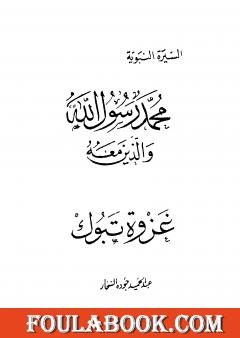 السيرة النبوية
محمد رسول الله
والذين معه
غزوة تبوك
عبد الحميد جودة السحار
FOULABOOK.COM